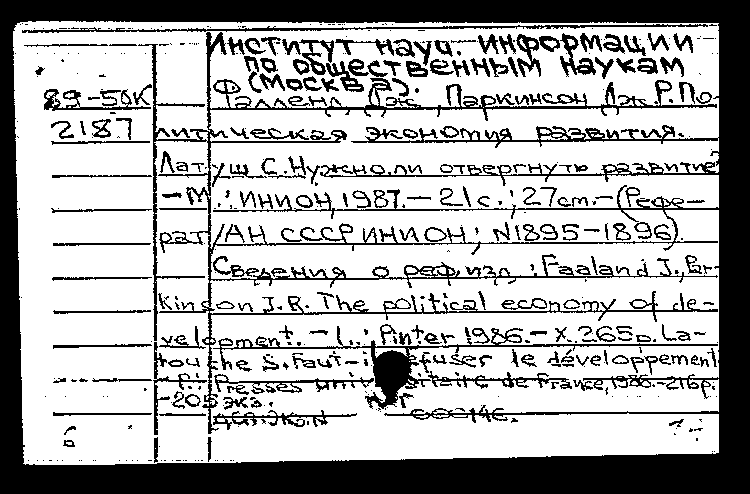 Институт науч. информации
по общественным наукам
(Москва).
89-50К Фалленд Дж., Паркинсон Дж.Р. По-
2187 литическая экономия развития.
Латуш С. Нужно ли отвергнуть развитие?
-М.: ИНИОН, 1987.- 21 с.; 27 cm.-(Рефе-
рат/АН СССР, ИНИОН; N1895-1896)
Сведения о реф.изд.: Faaland J., Par-
kinson J.R. The political economy of de-
velopment. - L.: Pinter, 1986.- X. 265p. La-
touche S. Faut-il refuser le développement
-P.: Presses univ. de France, 1986.-216p.
-205 экз.
6